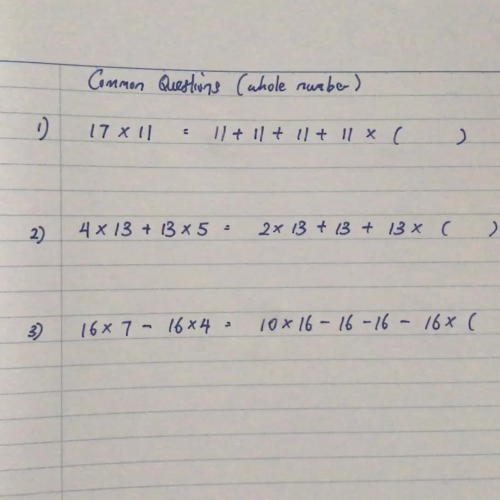 Common Questions (whole number)
1) 17 × 11 = 11 + 11 + 11 + 11 × ( )
2) 4 × 13 + 13 × 5 = 2 × 13 + 13 + 13 × ( )
3) 16 × 7 - 16 × 4 = 10 × 16 - 16 - 16 - 16 × (